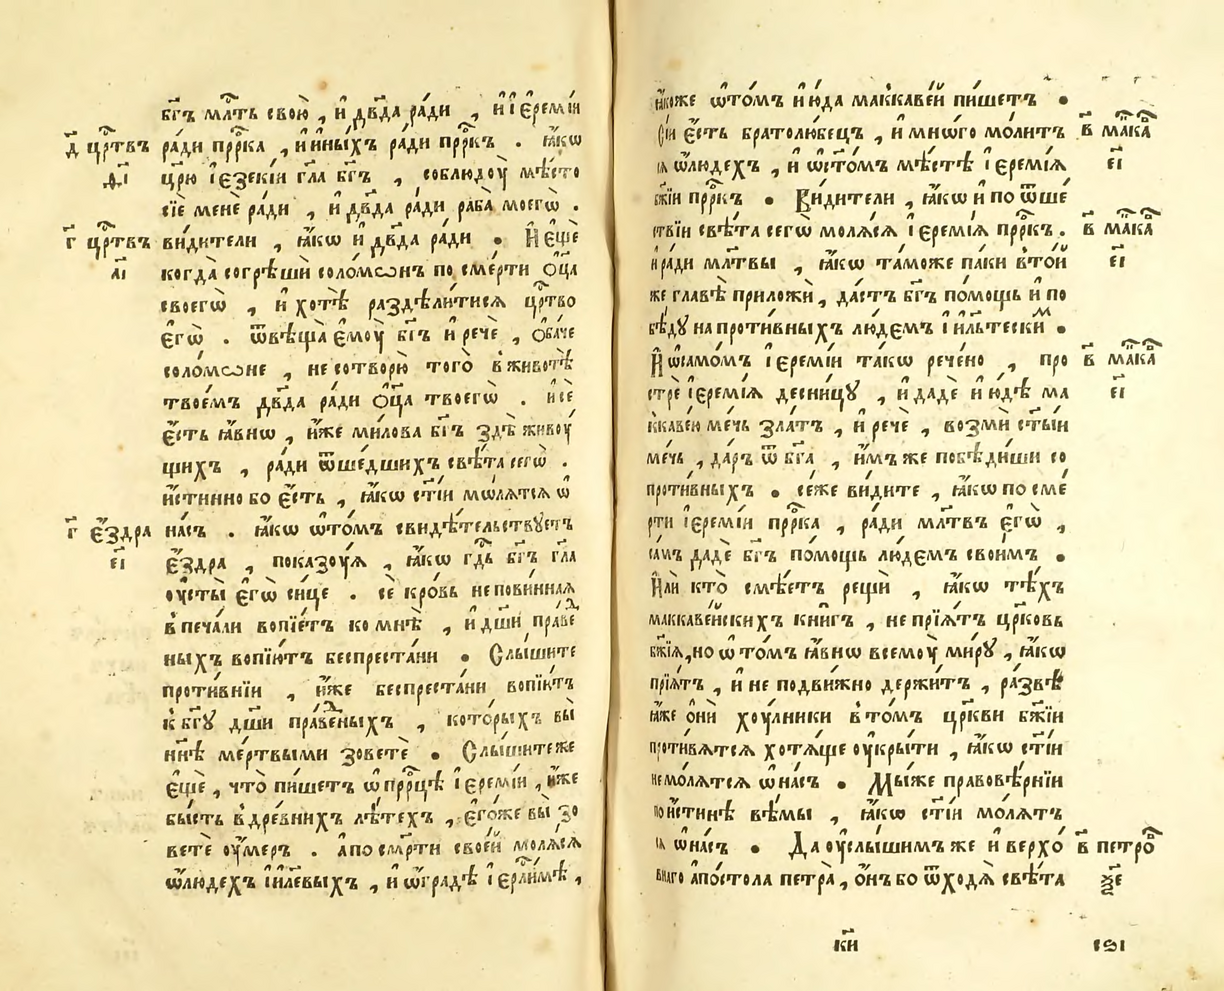 бг҃ъ млⷭ҇ть свою̀ , и҆ дв҃да ра́ди , и҆ і҆ереміи
д҃ црⷭ҇твъ ра́ди прⷪ҇рка , и҆ и҆ны́хъ ра́ди прⷪ҇ркъ . ꙗ҆́кѡ
д҃і цр҃ю і҆езекі́и гл҃а бг҃ъ , соблюдоу̀ мѣ́сто
сїѐ менѐ ра́ди , и҆ дв҃да ра́ди раба̀ моегѡ̀ .
г҃ црⷭ҇твъ ви́дители , ꙗ҆́кѡ и҆ дв҃да ра́ди • И҆ е҆щѐ
а҃і когда̀ согрѣшѝ соломѡ́нъ по сме́рти ѻ҆ц҃а
своегѡ̀ , и҆ хотѣ̀ раздѣли́тисѧ црⷭ҇тво
е҆гѡ̀ . ѿвѣща̀ е҆моу̀ бг҃ъ и҆ речѐ , ѻ҆ба́че
соломѡ́не , не сотворю̀ того̀ в животѣ̀
твое́мъ дв҃да ра́ди ѻ҆ц҃а твоегѡ̀ . и҆ сѐ
е҆́сть ꙗ҆́внѡ , и҆́же ми́лова бг҃ъ здѣ̀ живоу́
щихъ , ра́ди ѿше́дшихъ свѣ́та сегѡ̀ .
и҆́стинно бо е҆́сть , ꙗ҆́кѡ ст҃і́и мѡ́лѧтсѧ ѡ҆
г҃ е҆́здра на́съ . ꙗ҆́кѡ ѡ҆ то́мъ свидѣ́тельствꙋетъ
е҃і е҆́здра , показоу́ѧ , ꙗ҆́кѡ гдⷭ҇ь бг҃ъ гл҃а
оу҆сты̀ е҆гѡ̀ си́це . сѐ кро́вь непови́ннаѧ
в печа́ли вопїе́тъ ко мнѣ̀ , и҆ дш҃и праⷡ҇е
ныхъ вопїю́тъ беспреста́ни • Слы́шите
проти́внїи , и҆́же беспреста́ни вопїю́тъ
к бг҃ꙋ дш҃и праⷡ҇еныхъ , кото́рыхъ вы̀
ннѣ̀ ме́ртвыми зоветѐ • Слы́шите же
е҆щѐ , что̀ пи́шетъ ѡ҆ прⷪ҇рцѣ і҆еремі́и , и҆́же
бы́сть в дре́внихъ лѣ́техъ , е҆го́же вы̀ зо
ветѐ оу҆́меръ . а҆ по см҃рти свое́й молѧ́сѧ
ѡ҆ лю́дехъ і҆и҃левыхъ , и҆ ѡ҆ гра́дѣ і҆ерⷭ҇ли́мѣ ,
ꙗ҆́коже ѡ҆ то́мъ и҆ ю҆́да маккаве́й пи́шетъ •
Сі́и е҆́сть братолю́бецъ , и҆ мно́гѡ мо́лит в҃ макⷡ҇а
сѧ ѡ҆ лю́дехъ , и҆ ѡ҆ ст҃о́мъ мѣ́стѣ і҆еремі́ѧ е҃і
бж҃іи прⷪ҇ркъ • Ви́дители , ꙗ҆́кѡ и҆ по ѿше
ствїи свѣ́та сегѡ̀ молѧ́сѧ і҆еремі́ѧ прⷪ҇ркъ . в҃ макⷡ҇а
и҆ ра́ди мл҃твы , ꙗ҆́кѡ та́може па́ки в то́й е҃і
же главѣ̀ приложѝ , да́стъ бг҃ъ по́мощь и҆ по
бѣ́дꙋ на проти́вныхъ лю́демъ і҆и҃льтескиⷨ •
И҆ ѡ҆ само́мъ і҆еремі́и та́кѡ рече́но , про в҃ макⷡ҇а
стрѐ і҆еремі́ѧ десни́цꙋ , и҆ дадѐ и҆ ю҆́дѣ ма е҃і
ккаве́ю ме́чь зла́тъ , и҆ речѐ , возмѝ ст҃ы́и
ме́чь , да́ръ ѿ бг҃а , и҆́мъ же побѣди́ши со
проти́вныхъ • се́же ви́дите , ꙗ҆́кѡ по сме
рти і҆еремі́и прⷪ҇рка , ра́ди мл҃твъ е҆гѡ̀ ,
са́мъ дадѐ бг҃ъ по́мощь лю́демъ свои́мъ •
И҆лѝ кто̀ смѣ́етъ рещѝ , ꙗ҆́кѡ тѣ́хъ
маккаве́йскихъ кни́гъ , не прїѧ́тъ цр҃ковь
бж҃їѧ , но ѡ҆ то́мъ ꙗ҆́внѡ всемоу̀ ми́рꙋ , ꙗ҆́кѡ
прїѧ́тъ , и҆ не подви́жно держи́тъ , ра́звѣ
ꙗ҆́же ѻ҆ни́ хоу́лники в то́мъ цр҃кви бж҃їи
проти́вѧтсѧ хотѧ́ще оу҆кры́ти , ꙗ҆́кѡ ст҃і́и
не мо́лѧтсѧ ѡ҆ на́съ • Мы́же правовѣ́рнїи
пои҆́стинѣ вѣ́мы , ꙗ҆́кѡ ст҃і́и мо́лѧтъ
сѧ ѡ҆ на́съ • Да оу҆слы́шимъ же и҆ верхо́ в҃ петроⷡ҇
внаго а҆по́стола петра̀ , ѻ҆́нъ бо ѿходѧ̀ свѣ́та
к҃и